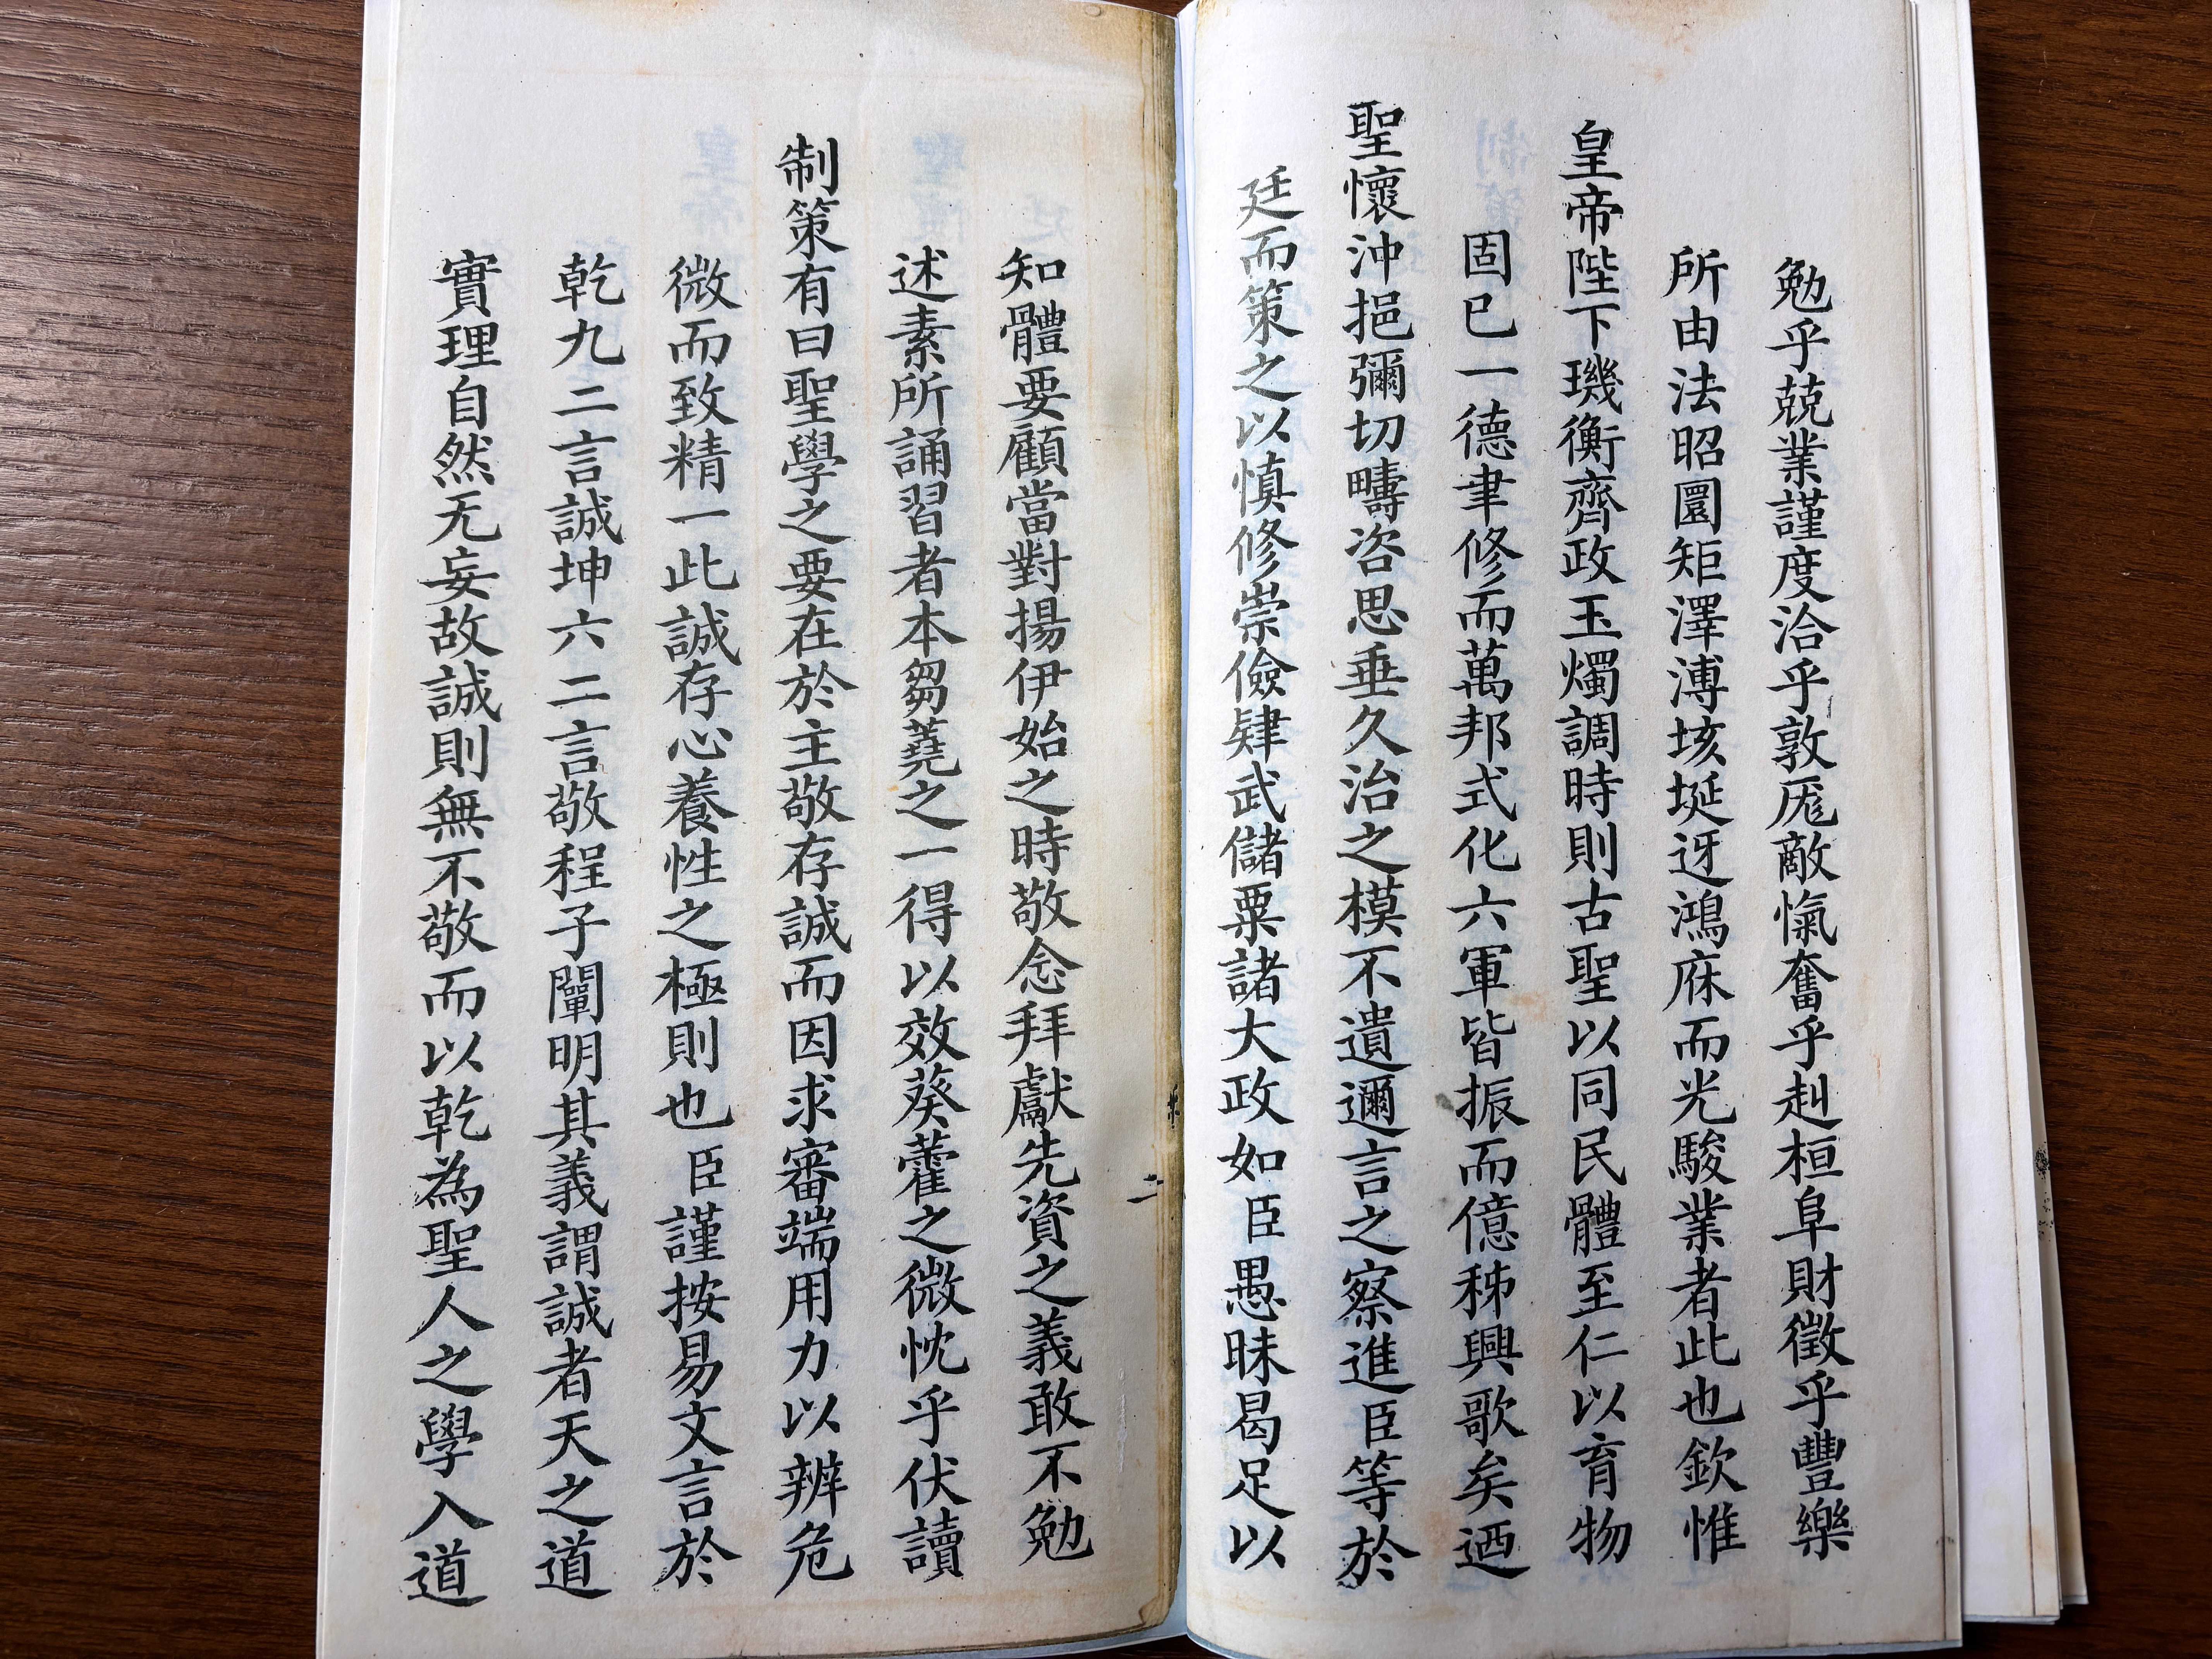 勉乎兢業謹度洽乎敦厖敵愾奮乎赳桓阜財徵乎豐樂
所由法昭圜矩澤溥垓埏迓鴻庥而光駿業者此也欽惟
皇帝陛下璣衡齊政玉燭調時則古聖以同民體至仁以育物
固已一德聿修而萬邦式化六軍皆振而億秭興歌矣迺
聖懷沖挹彌切疇咨思垂久治之模不遺邇言之察進臣等於
廷而策之以慎修崇儉肄武儲粟諸大政如臣愚昧曷足以
知體要顧當對揚伊始之時敬念拜獻先資之義敢不勉
述素所誦習者本芻蕘之一得以效葵藿之微忱乎伏讀
制策有曰聖學之要在於主敬存誠而因求審端用力以辨危
微而致精一此誠存心養性之極則也臣謹按易文言於
乾九二言誠坤六二言敬程子闡明其義謂誠者天之道
實理自然无妄故誠則無不敬而以乾為聖人之學入道
二